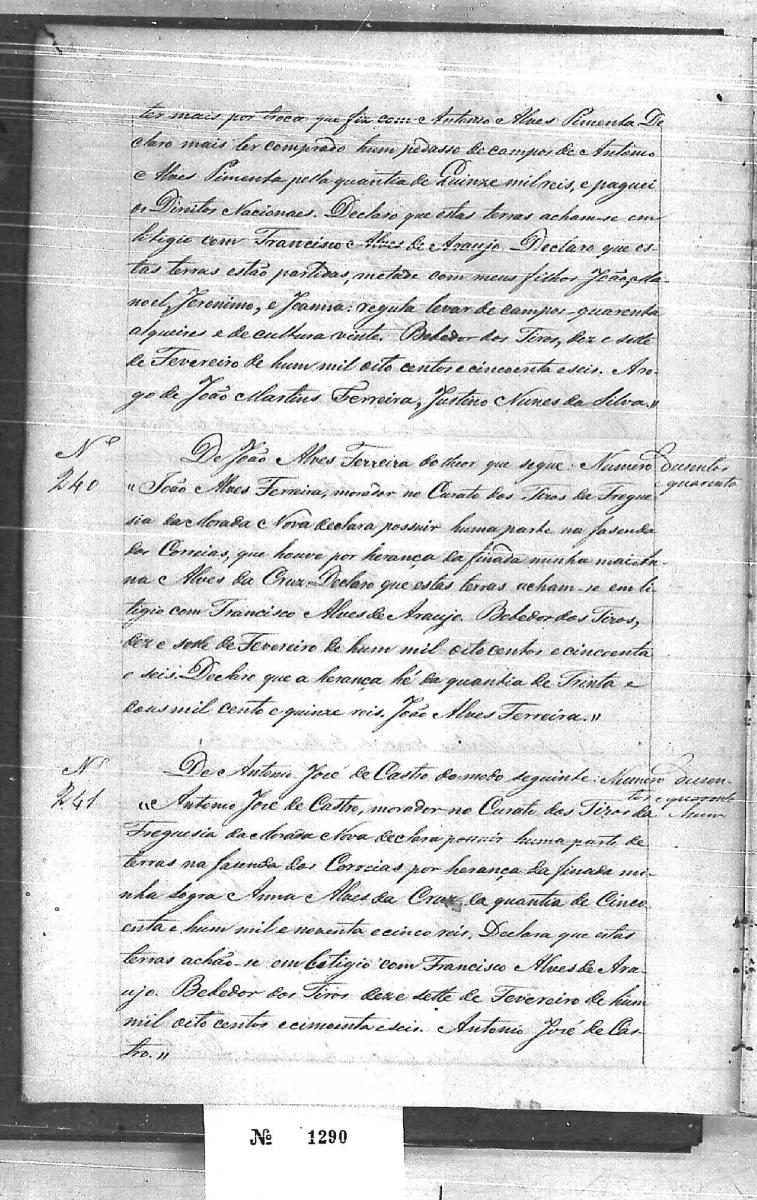 ter mais por troca que fiz com Antonio Alves Pimenta De
claro mais ter comprado hum pedasso de campos de Antonio
Alves Pimenta pella quantia de Quinze mil reis, e paguei
os Direitos Nacionaes. Declaro que estas terras acham-se em
letigio com Francisco Alves de Araujo. Declaro que es-
tas terras estão partidas, metade com meus filhos João, Ma-
noel, Jeronimo, e Joanna: regula levar de campos quarenta
alqueires e de cultura vinte. Bebedor dos Tiros, dez e sette
de Fevereiro de hum mil oito centos e cincoenta e seis. Aro-
go de João Martins Ferreira, Justino Nunes da Silva."
Nº 240
De João Alves Ferreira do theor que segue: Numero dusentos
quarenta
"João Alves Ferreira, morador no Curato dos Tiros da Fregue-
sia da Morada Nova declara possuir huma parte na fasenda
dos Correias, que houve por herança da finada minha mai An-
na Alves da Cruz - Declaro que estas terras acham-se em li
tigio com Francisco Alves de Araujo. Bebedor dos Tiros,
dez e sette de Fevereiro de hum mil oito centos e cincoenta
e seis. Declaro que a herança hé da quantia de Trinta e
dous mil cento e quinze reis. João Alves Ferreira."
Nº 241
De Antonio José de Castro do modo seguinte: Numero dusen-
tos e quarenta
hum
"Antonio José de Castro, morador no Curato dos Tiros da
Freguesia da Morada Nova declara possuir huma parte de
terras na fasenda dos Correias por herança da finada mi-
nha sogra Anna Alves da Cruz, da quantia de Cinco
enta e hum mil e noventa e cinco reis. Declara que estas
terras achão-se em Letigio com Francisco Alves de Ara-
ujo. Bebedor dos Tiros dez e sette de Fevereiro de hum
mil oito centos e cincoenta e seis. Antonio José de Cas-
tro."
Nº 1290